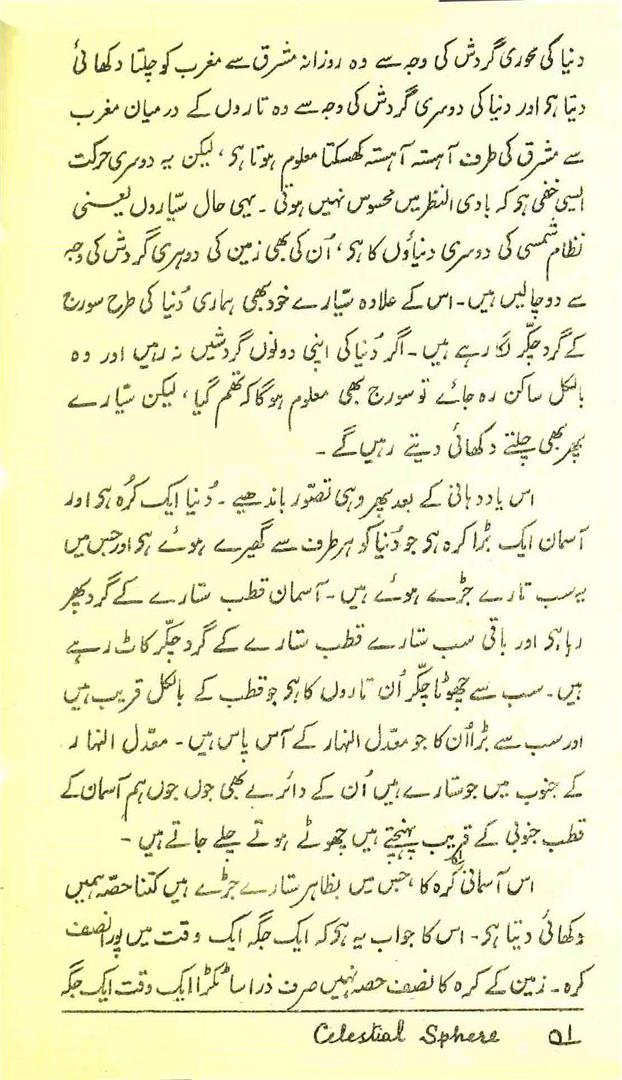 دنیا کی محوری گردش کی وجہ سے وہ روزانہ مشرق سے مغرب کو چلتا دکھائی
دیتا ہی اور دنیا کی دوسری گردش کی وجہ سے وہ تاروں کے درمیان مغرب
سے مشرق کی طرف آہستہ آہستہ کھسکتا معلوم ہوتا ہی، لیکن یہ دوسری حرکت
ایسی خفی ہی کہ بادی النظر میں محسوس نہیں ہوتی۔ یہی حال سیّاروں یعنی
نظام شمسی کی دوسری دنیاؤں کا ہی، اُن کی بھی زمین کی دوہری گردش کی وجہ
سے دو چالیں ہیں۔ اس کے علاوہ سیّارے خود بھی ہماری دُنیا کی طرح سورج
کے گرد چکّر لگا رہے ہیں۔ اگر دُنیا کی اپنی دونوں گردشیں نہ رہیں اور وہ
بالکل ساکن رہ جائے تو سورج بھی معلوم ہوگا کہ تھم گیا، لیکن سیّارے
پھر بھی چلتے دکھائی دیتے رہیں گے۔
اس یاد دہانی کے بعد پھر وہی تصوّر باندھیے۔ دُنیا ایک کُرہ ہی اور
آسمان ایک بڑا کرہ ہی جو دُنیا کو ہر طرف سے گھیرے ہوئے ہی اور جس میں
یہ سب تارے جڑے ہوئے ہیں۔ آسمان قطب ستارے کے گرد پھر
رہا ہی اور باقی سب ستارے قطب ستارے کے گرد چکّر کاٹ رہے
ہیں۔ سب سے چھوٹا چکّر اُن تاروں کا ہی جو قطب کے بالکل قریب ہیں
اور سب سے بڑا اُن کا جو معدّل النہار کے آس پاس ہیں۔ معدّل النہار
کے جنوب میں جو ستارے ہیں اُن کے دائرے بھی جوں جوں ہم آسمان کے
قطب جنوبی کے قریب پہنچتے ہیں چھوٹے ہوتے چلے جاتے ہیں۔
اس آسمانی کُرہ کا، جس میں بظاہر ستارے جڑے ہیں کتنا حصّہ ہمیں
دکھائی دیتا ہی۔ اس کا جواب یہ ہی کہ ایک جگہ ایک وقت میں پورا نصف
کرہ۔ زمین کے کرہ کا نصف حصہ نہیں صرف ذرا سا ٹکڑا ایک وقت ایک جگہ
Celestial Sphere ۵۱